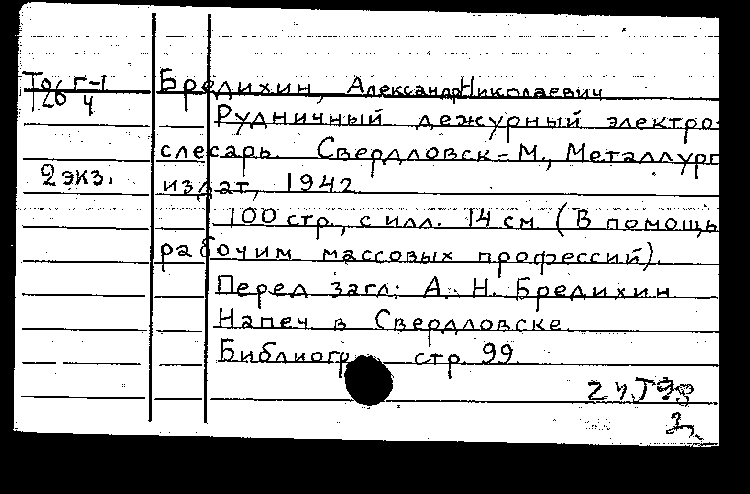 Бредихин, Александр Николаевич
Рудничный дежурный электро-
слесарь. Свердловск-М., Металлург
2 экз. издат, 1942
100 стр., с илл. 14 см (В помощь
рабочим массовых профессий).
Перед загл: А. Н. Бредихин
Напеч. в Свердловске.
Библиогр. стр. 99